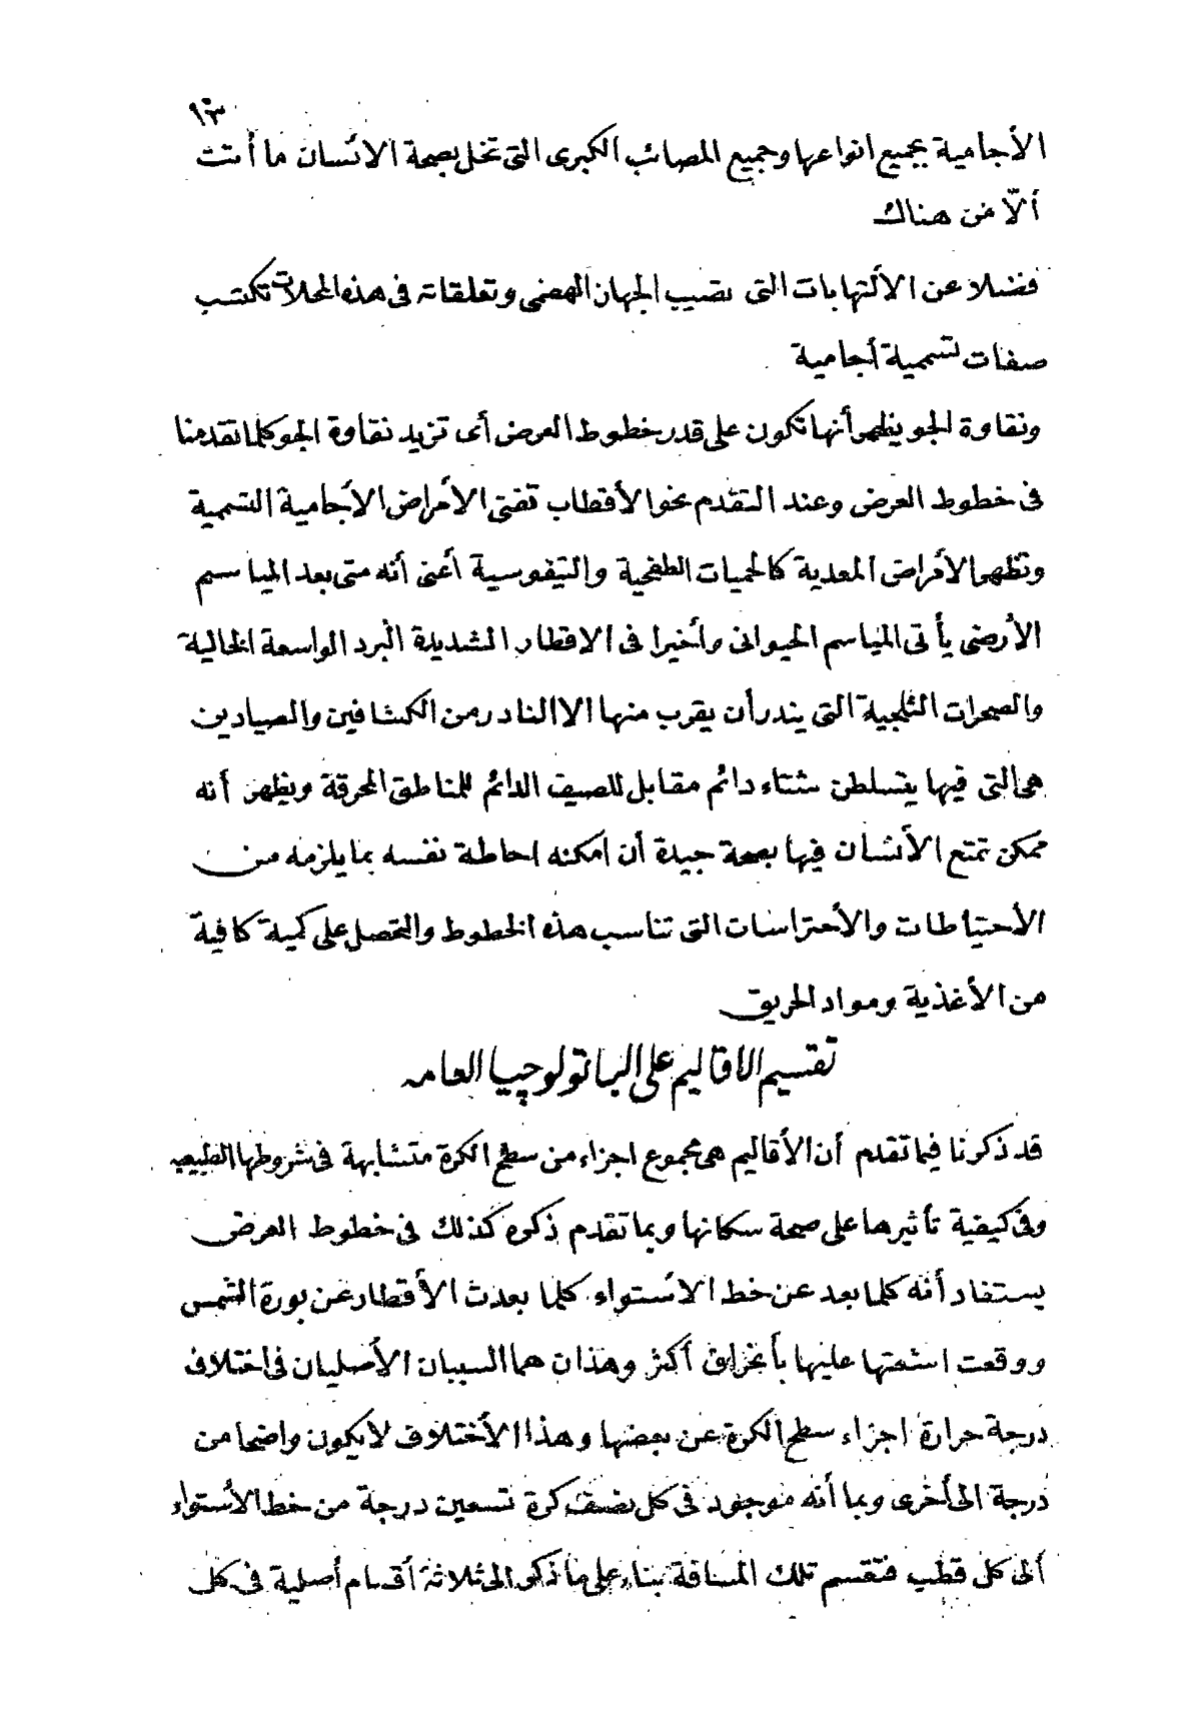 ١٣
الأجامية بجميع انواعها وجميع المصائب الكبرى التى تخل بصحة الانسان ما أتت
ألّا من هناك
فضلا عن الألتهابات التى تصيب الجهاز الهضمى وتعلقاته فى هذه المحلات تكتسب
صفات تسممية أجامية
ونقاوة الجو يظهر أنها تكون على قدر خطوط العرض أى تزيد نقاوة الجو كلما تقدمنا
فى خطوط العرض وعند التقدم نحو الأقطاب تفنى الأمراض الأجامية التسممية
وتظهر الأمراض المعدية كالحميات الطفحية والتيفوسية أعنى أنه متى بعد المياسم
الأرضى يأتى المياسم الحيوانى وأخيرا فى الاقطار الشديدة البرد الواسعة الخالية
والصحرات الثلجية التى يندر أن يقرب منها الا النادر من الكشافين والصيادين
هى التى فيها يتسلطن شتاء دائم مقابل للصيف الدائم للمناطق المحرقة ويظهر أنه
ممكن تمتع الأنسان فيها بصحة جيدة أن امكنه احاطة نفسه بما يلزمه من
الأحتياطات والأحتراسات التى تناسب هذه الخطوط والتحصل على كمية كافية
من الأغذية ومواد الحريق
تقسيم الاقاليم على الباتولوجيا العامه
قد ذكرنا فيما تقدم أن الأقاليم هى مجموع اجزاء من سطح الكرة متشابهة فى شروطها الطبيعيه
وفى كيفية تأثيرها على صحة سكانها وبما تقدم ذكره كذلك فى خطوط العرض
يستفاد أنه كلما بعد عن خط الاستواء كلما بعدت الأقطار عن بورة الشمس
ووقعت اشعتها عليها بأنحراف أكثر وهذان هما السببان الأصليان فى اختلاف
درجة حرارة اجزاء سطح الكرة عن بعضها وهذا الأختلاف لا يكون واضحا من
درجة الى أخرى وبما أنه موجود فى كل نصف كرة تسعين درجة من خط الأستواء
ألى كل قطب فتقسم تلك المسافة بناء على ما ذكر الى ثلاثة أقسام أصلية فى كل